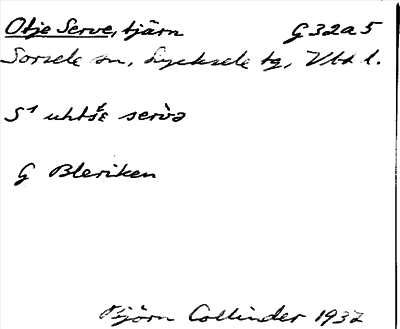 Otje Serve, tjärn G 32 a 5
Sorsele sn, Lycksele tg, Vbt l.
S¹ uhtśε serὺə
G Bleriken
Björn Collinder 1937